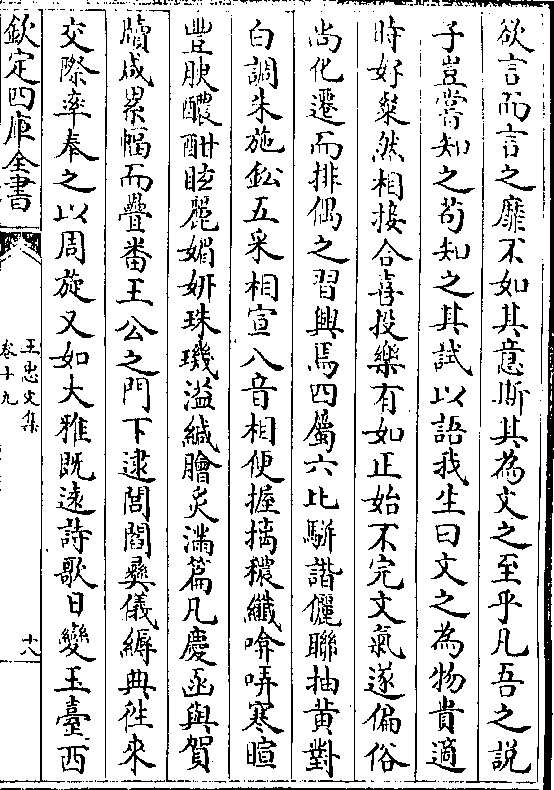 欲言而言之靡不如其意斯其為文之至乎凡吾之說
子豈嘗知之茍知之其試以語我生曰文之為物貴適
時好粲然相接合喜投樂有如正始不完文氣遂偏俗
尚化遷而排偶之習興焉四屬六比駢諧儷聯抽黃對
白調朱施鉛五采相宣八音相便握擿穠纖噏哢寒暄
豐腴醲酣眩麗媚妍珠璣溢緘膾炙滿篇凡慶函與賀
牘成累幅而疊番王公之門下逮閭閻彞儀縟典徃來
交際率奉之以周旋又如大雅既逺詩歌日變玉臺西
欽定四庫全書
王忠文集
卷十九
十八